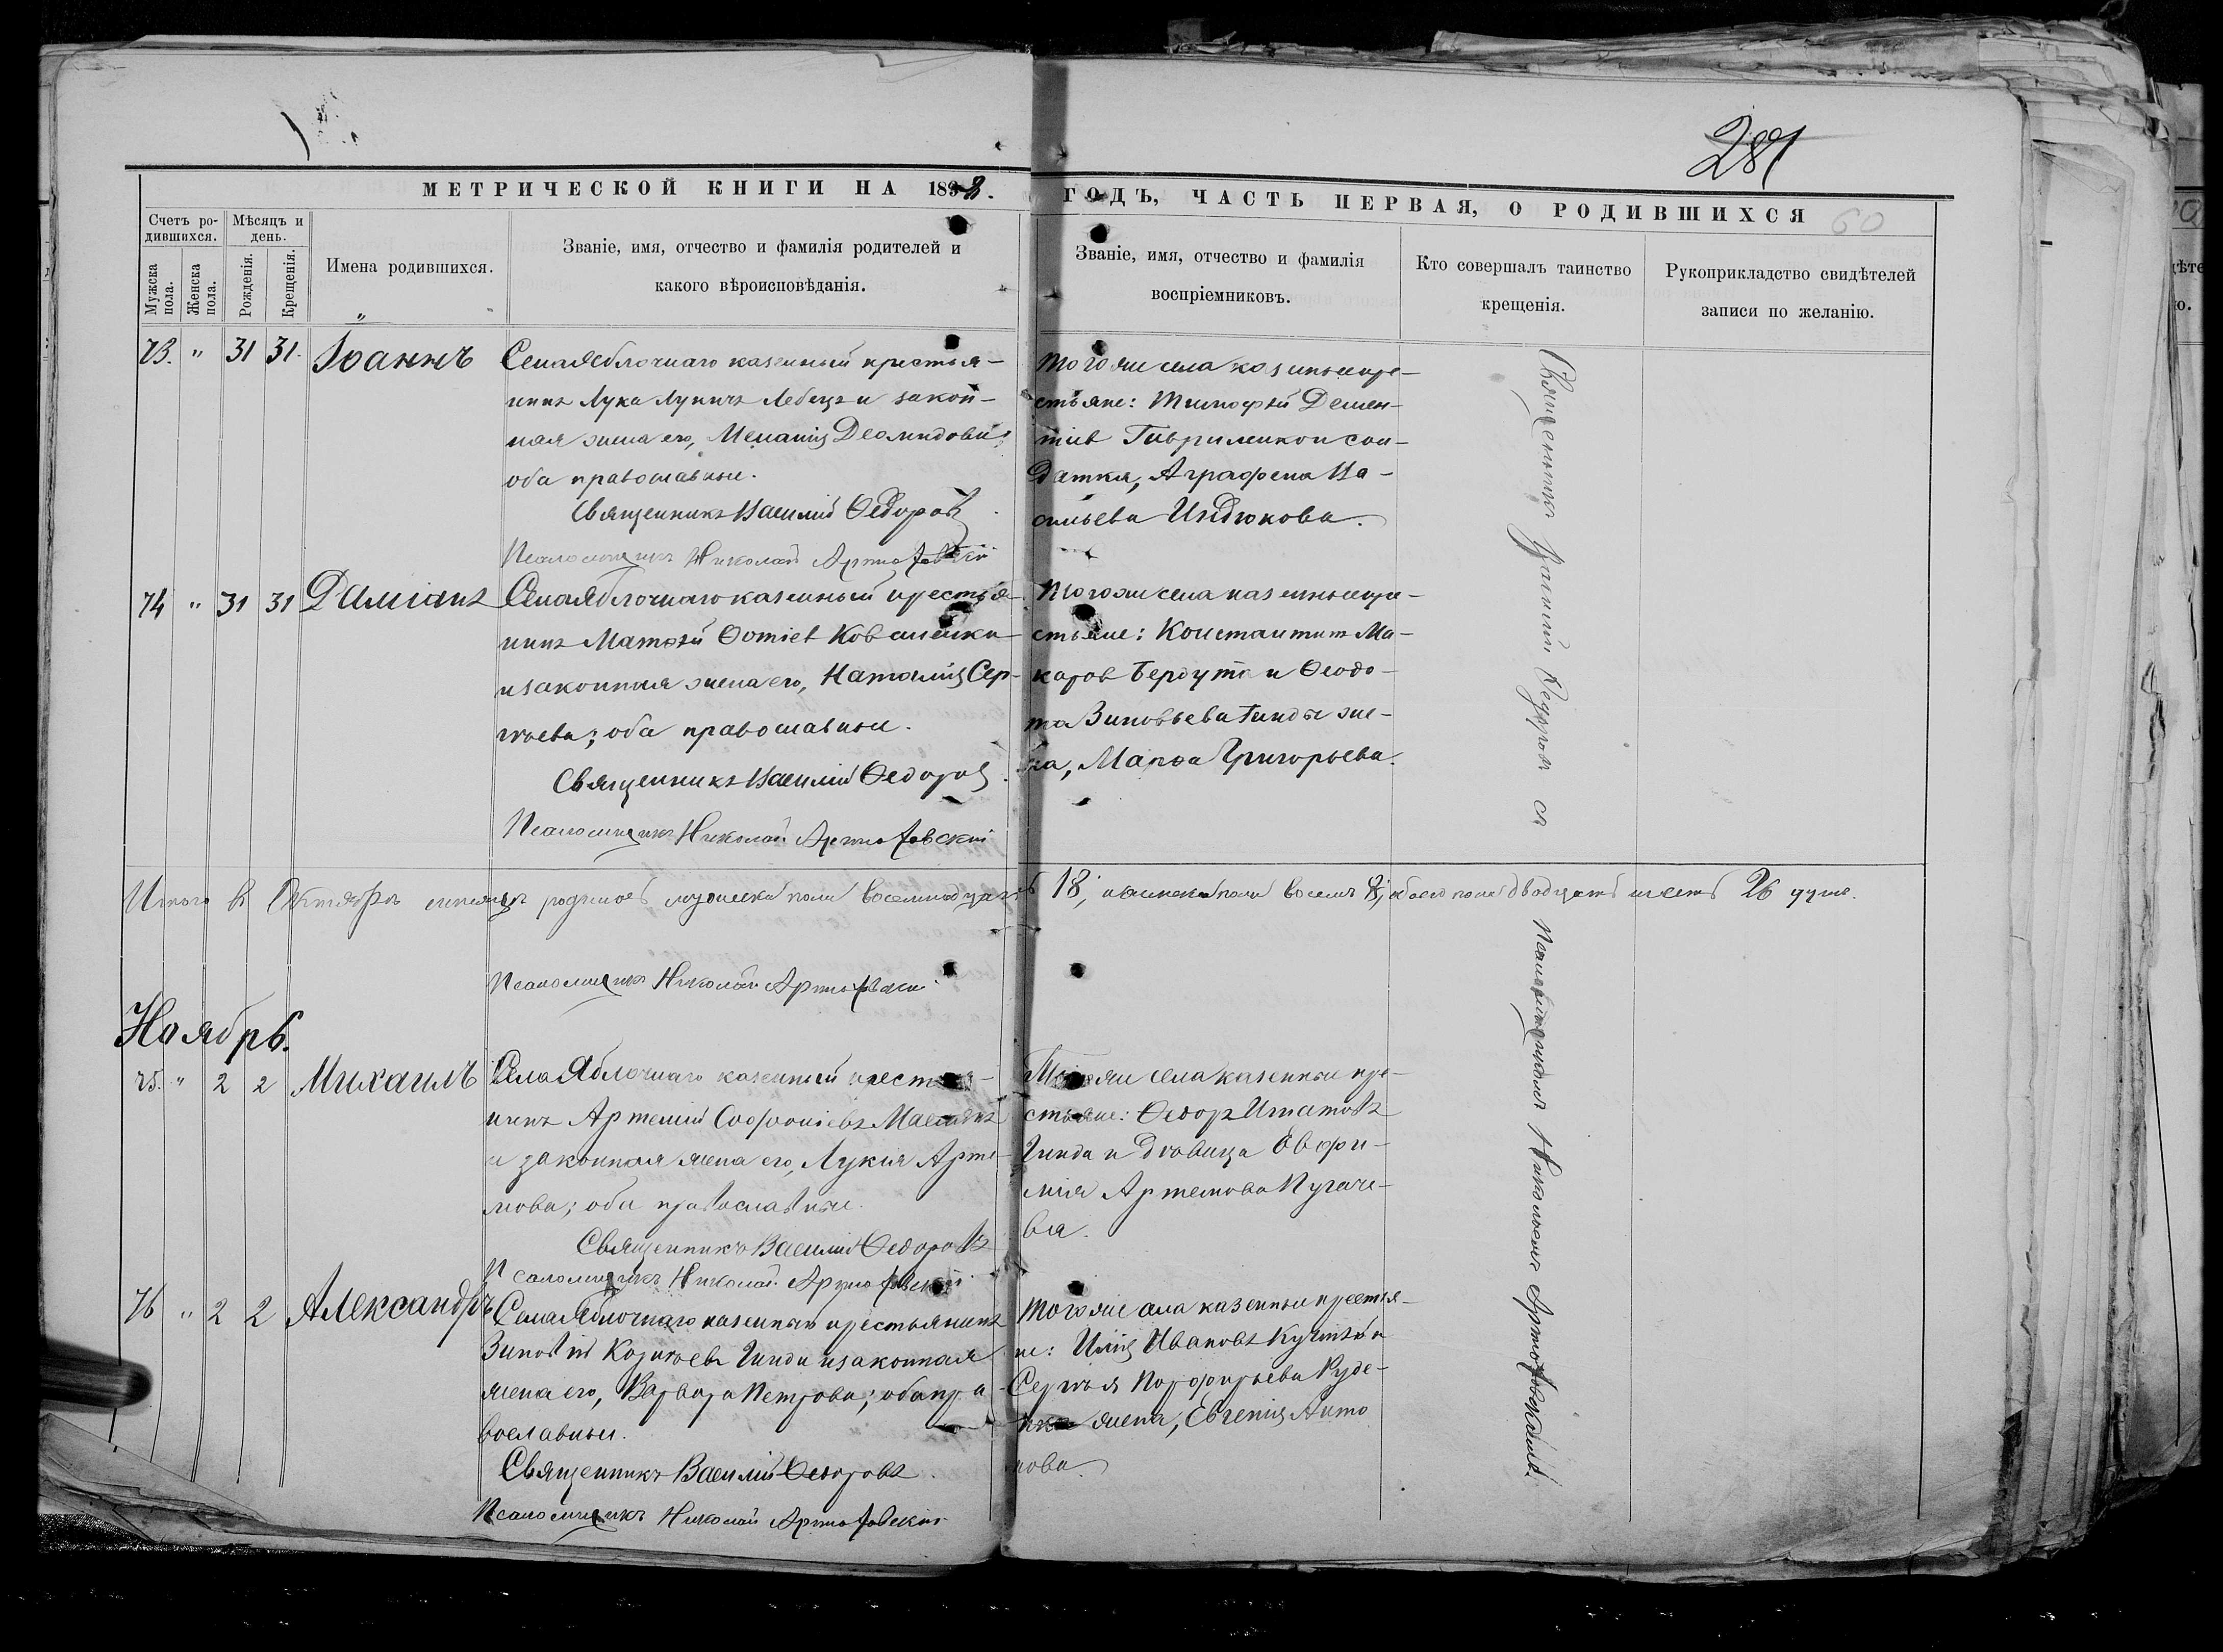 281
60
МЕТРИЧЕСКОЙ КНИГИ НА 1898. ГОДЪ, ЧАСТЬ ПЕРВАЯ, О РОДИВШИХСЯ
Счетъ родившихся.
Мужска пола.
Женска пола.
Мѣсяцъ и день.
Рожденія.
Крещенія.
Имена родившихся.
Званіе, имя, отчество и фамилія родителей и
какого вѣроисповѣданія.
Званіе, имя, отчество и фамилія
воспріемниковъ.
Кто совершалъ таинство
крещенія.
Рукоприкладство свидѣтелей
записи по желанію.
73. " 31 31. Іоаннъ
Села Яблочнаго казенный крестья-
нинъ Лука Лукичъ Лебедь и закон-
ная жена его, Меланія Деомидова
оба православные.
Священникъ Василій Ѳедоровъ
Псаломщикъ Николай
Того же села казенные кре-
стьяне: Тимофей Демен-
тіев и сол-
датка, Аграфена Ва-
сильева Индюкова.
74 " 31 31 Даміанъ
Села Яблочнаго казенный крестья-
нинъ Матвѣй Фотіев
и законная жена его, Наталія Сер-
гѣева; оба православные.
Священникъ Василій Ѳедоровъ
Псаломщикъ Николай
Того же села казенные кре-
стьяне: Константин Ма-
каров и Ѳеодо-
та Зиновьева Гинды же-
на, Марфа Григорьева.
Итого в Октябрѣ мѣсяцѣ родилось мужеска пола восемнадцать 18, женска пола восемь 8, обоего пола двадцать шесть 26 душъ.
Псаломщикъ Николай
Ноябрь.
75. " 2 2 Михаилъ
Села Яблочнаго казенный крестья-
нинъ Артемій Софроніевъ
и законная жена его, Лукія Арте-
мова; оба православные.
Священникъ Василій Ѳедоровъ
Псаломщикъ Николай
Того же села казенные кре-
стьяне: Ѳедоръ Игнатовъ
Гинда и дѣвица Евфи-
мія Артемова Пугаче-
ва.
76 " 2 2 Александръ
Села Яблочнаго казенный крестьянинъ
Зиновій Гинда и законная
жена его, Варвара Петрова; оба пра-
вославные.
Священникъ Василій Ѳедоровъ
Псаломщикъ Николай
Того же села казенные крестья-
не: Илія Ивановъ и
Сергѣя Порфирьева
жена, Евгенія Анто
нова.
Священникъ Василій Ѳедоровъ съ
Псаломщикомъ Николаемъ